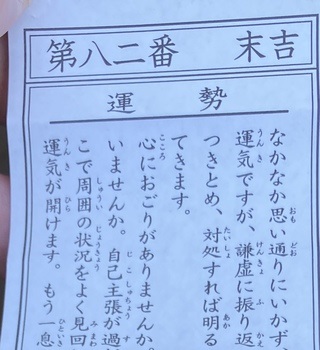 第八二番 末吉
運勢
なかなか思い通りにいかず
運気ですが、謙虚に振り返
つきとめ、対処すれば明る
てきます。
心におごりがありませんか。
いませんか。自己主張が過
こで周囲の状況をよく見回
運気が開けます。もう一息